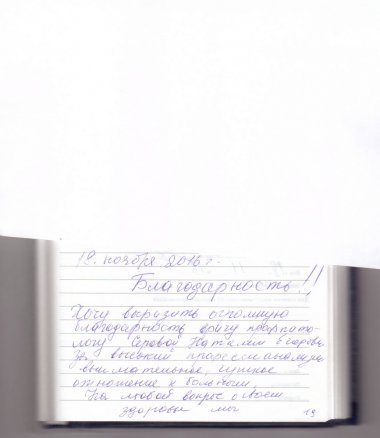 19. ноября 2016 г.
Благодарность!!
Хочу выразить огромную
благодарность врачу
Наталии
за высокий профессионализм,
внимательное, чуткое
отношение к больному.
На любой вопрос о своем
здоровье мог
19